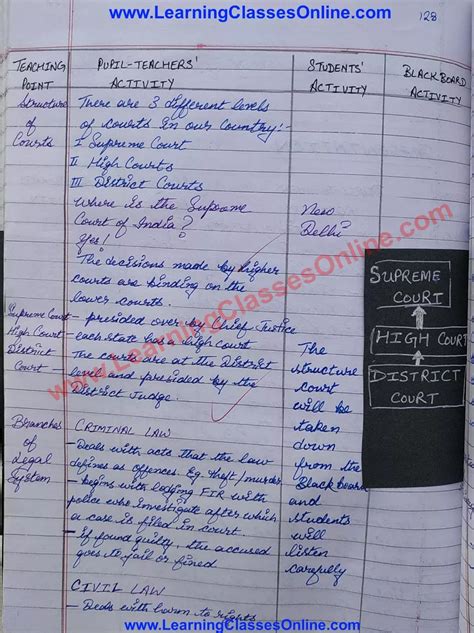 www.LearningClassesOnline.com
128
TEACHING POINT
PUPIL-TEACHERS' ACTIVITY
STUDENTS' ACTIVITY
BLACKBOARD ACTIVITY
Structure
of
Courts
There are 3 different levels
of courts in our country:-
I Supreme Court
II High Courts
III District Courts
Where is the Supreme
Court of India?
Yes!
The decisions made by higher
courts are binding on the
lower courts.
New
Delhi
Supreme Court
High Court
District
Court
– presided over by Chief Justice
– each state has a high court
The courts are at the District
level and presided by the
District Judge.
The
structure
court
will be
taken
down
from the
Blackboard
and
students
will
listen
carefully
SUPREME
COURT
HIGH COURT
DISTRICT
COURT
Branches
of
Legal
System
CRIMINAL LAW
– Deals with acts that the law
defines as offences. Eg. theft/murder
– begins with lodging FIR with
police who investigate after which
a case is filed in court.
– if found guilty, the accused
goes to jail or fined
CIVIL LAW
– Deals with harm to rights
www.LearningClassesOnline.com
www.LearningClassesOnline.com